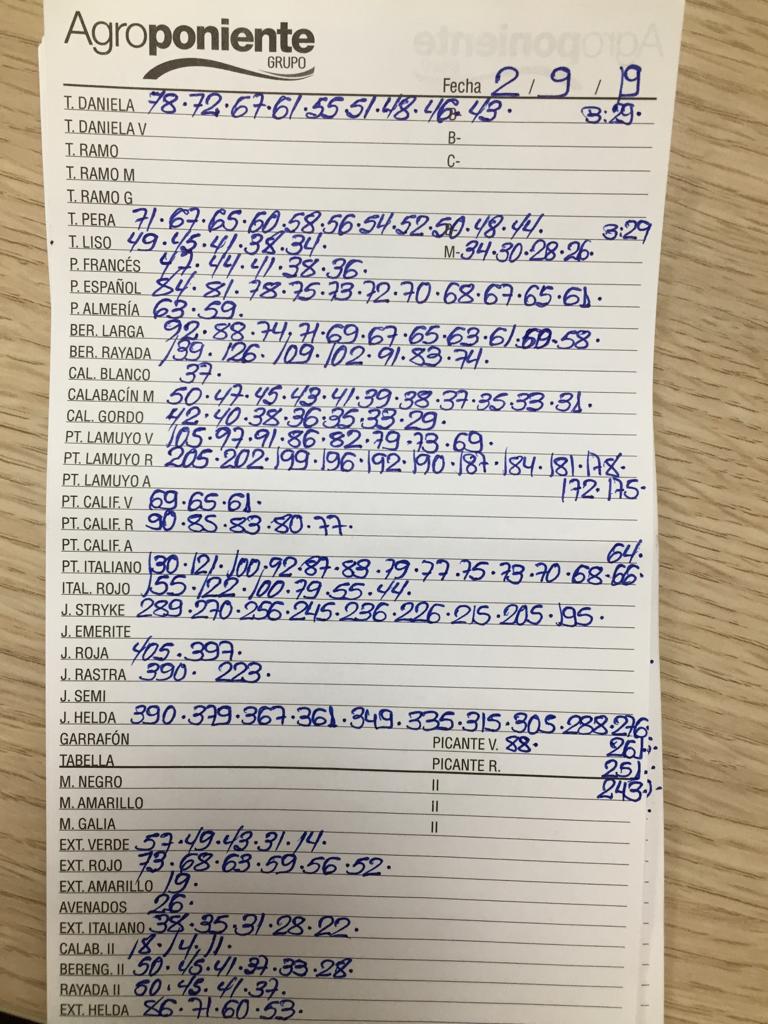 Agroponiente
GRUPO
Fecha 2 / 9 / 19
T. DANIELA 78·72·67·61·55 51·48·46·43· B:29·
T. DANIELA V B-
T. RAMO C-
T. RAMO M
T. RAMO G
T. PERA 71·67·65·60·58·56·54·52·50·48·44· B:29
T. LISO 49·45·41·38·34· M-34·30·28·26·
P. FRANCÉS 47·44·41·38·36·
P. ESPAÑOL 84·81·78·75·73·72·70·68·67·65·61·
P. ALMERÍA 63·59·
BER. LARGA 92·88·74·71·69·67·65·63·61·59·58·
BER. RAYADA 139·126·109·102·91·83·74·
CAL. BLANCO 37·
CALABACÍN M 50·47·45·43·41·39·38·37·35·33·31·
CAL. GORDO 42·40·38·36·35·33·29·
PT. LAMUYO V 105·97·91·86·82·79·73·69·
PT. LAMUYO R 205·202·199·196·192·190·187·184·181·178·
PT. LAMUYO A 172·175·
PT. CALIF. V 69·65·61·
PT. CALIF. R 90·85·83·80·77·
PT. CALIF. A 64·
PT. ITALIANO 130·121·100·92·87·83·79·77·75·73·70·68·66·
ITAL. ROJO 155·122·100·79·55·44·
J. STRYKE 289·270·256·245·236·226·215·205·195·
J. EMERITE
J. ROJA 405·397·
J. RASTRA 390· 223·
J. SEMI
J. HELDA 390·379·367·361·349·335·315·305·288·276
GARRAFÓN PICANTE V. 88· 261·
TABELLA PICANTE R. 251·
M. NEGRO II 243·
M. AMARILLO II
M. GALIA II
EXT. VERDE 57·49·43·31·14·
EXT. ROJO 73·68·63·59·56·52·
EXT. AMARILLO 19·
AVENADOS 26·
EXT. ITALIANO 38·35·31·28·22·
CALAB. II 18·14·11·
BERENG. II 50·45·41·37·33·28·
RAYADA II 60·45·41·37·
EXT. HELDA 86·71·60·53·